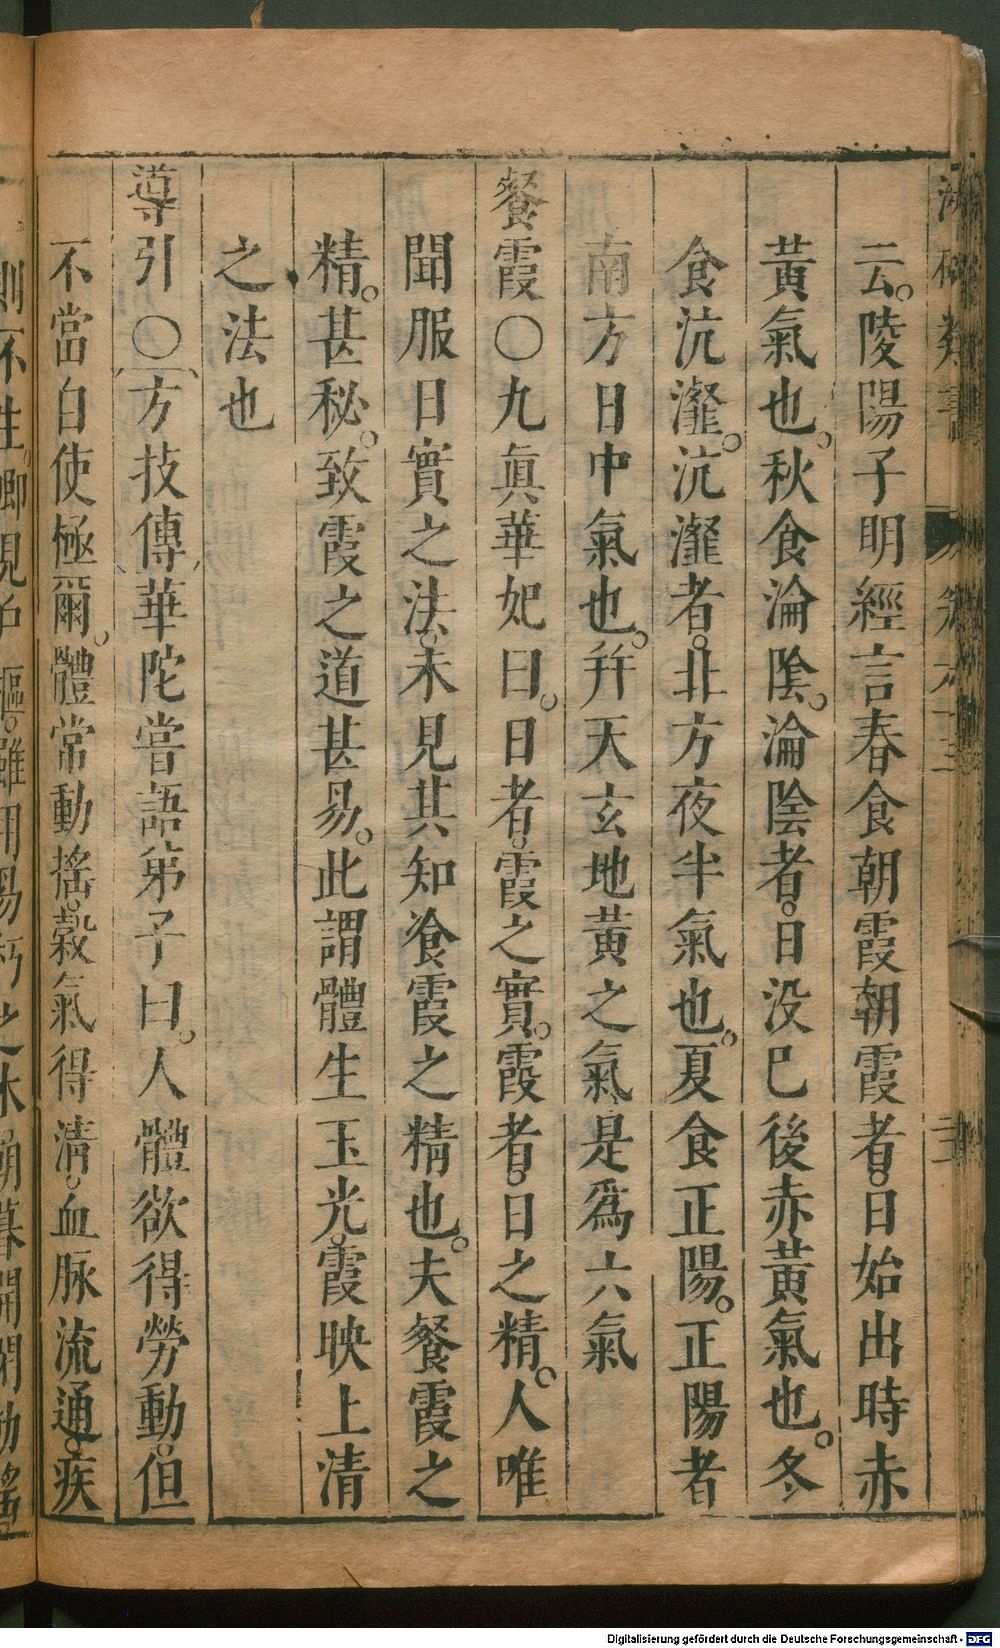 云。陵陽子明經言春食朝霞朝霞者。日始出時赤
黃氣也。秋食淪陰。淪陰者。日没巳後赤黃氣也。冬
食沆瀣。沆瀣者。北方夜半氣也。夏食正陽。正陽者
南方日中氣也。幷天玄地黃之氣是爲六氣
餐霞〇九眞華妃曰。日者。霞之實。霞者。日之精。人唯
聞服日實之法。未見其知飡霞之精也。夫餐霞之
精。甚秘。致霞之道甚易。此謂體生玉光。霞映上清
之法也
導引〇方技傳華陀嘗語弟子曰。人體欲得勞動。但
不當自使極爾。體常動搖。穀氣得淸。血脉流通。疾
Digitalisierung gefördert durch die Deutsche Forschungsgemeinschaft - DFG